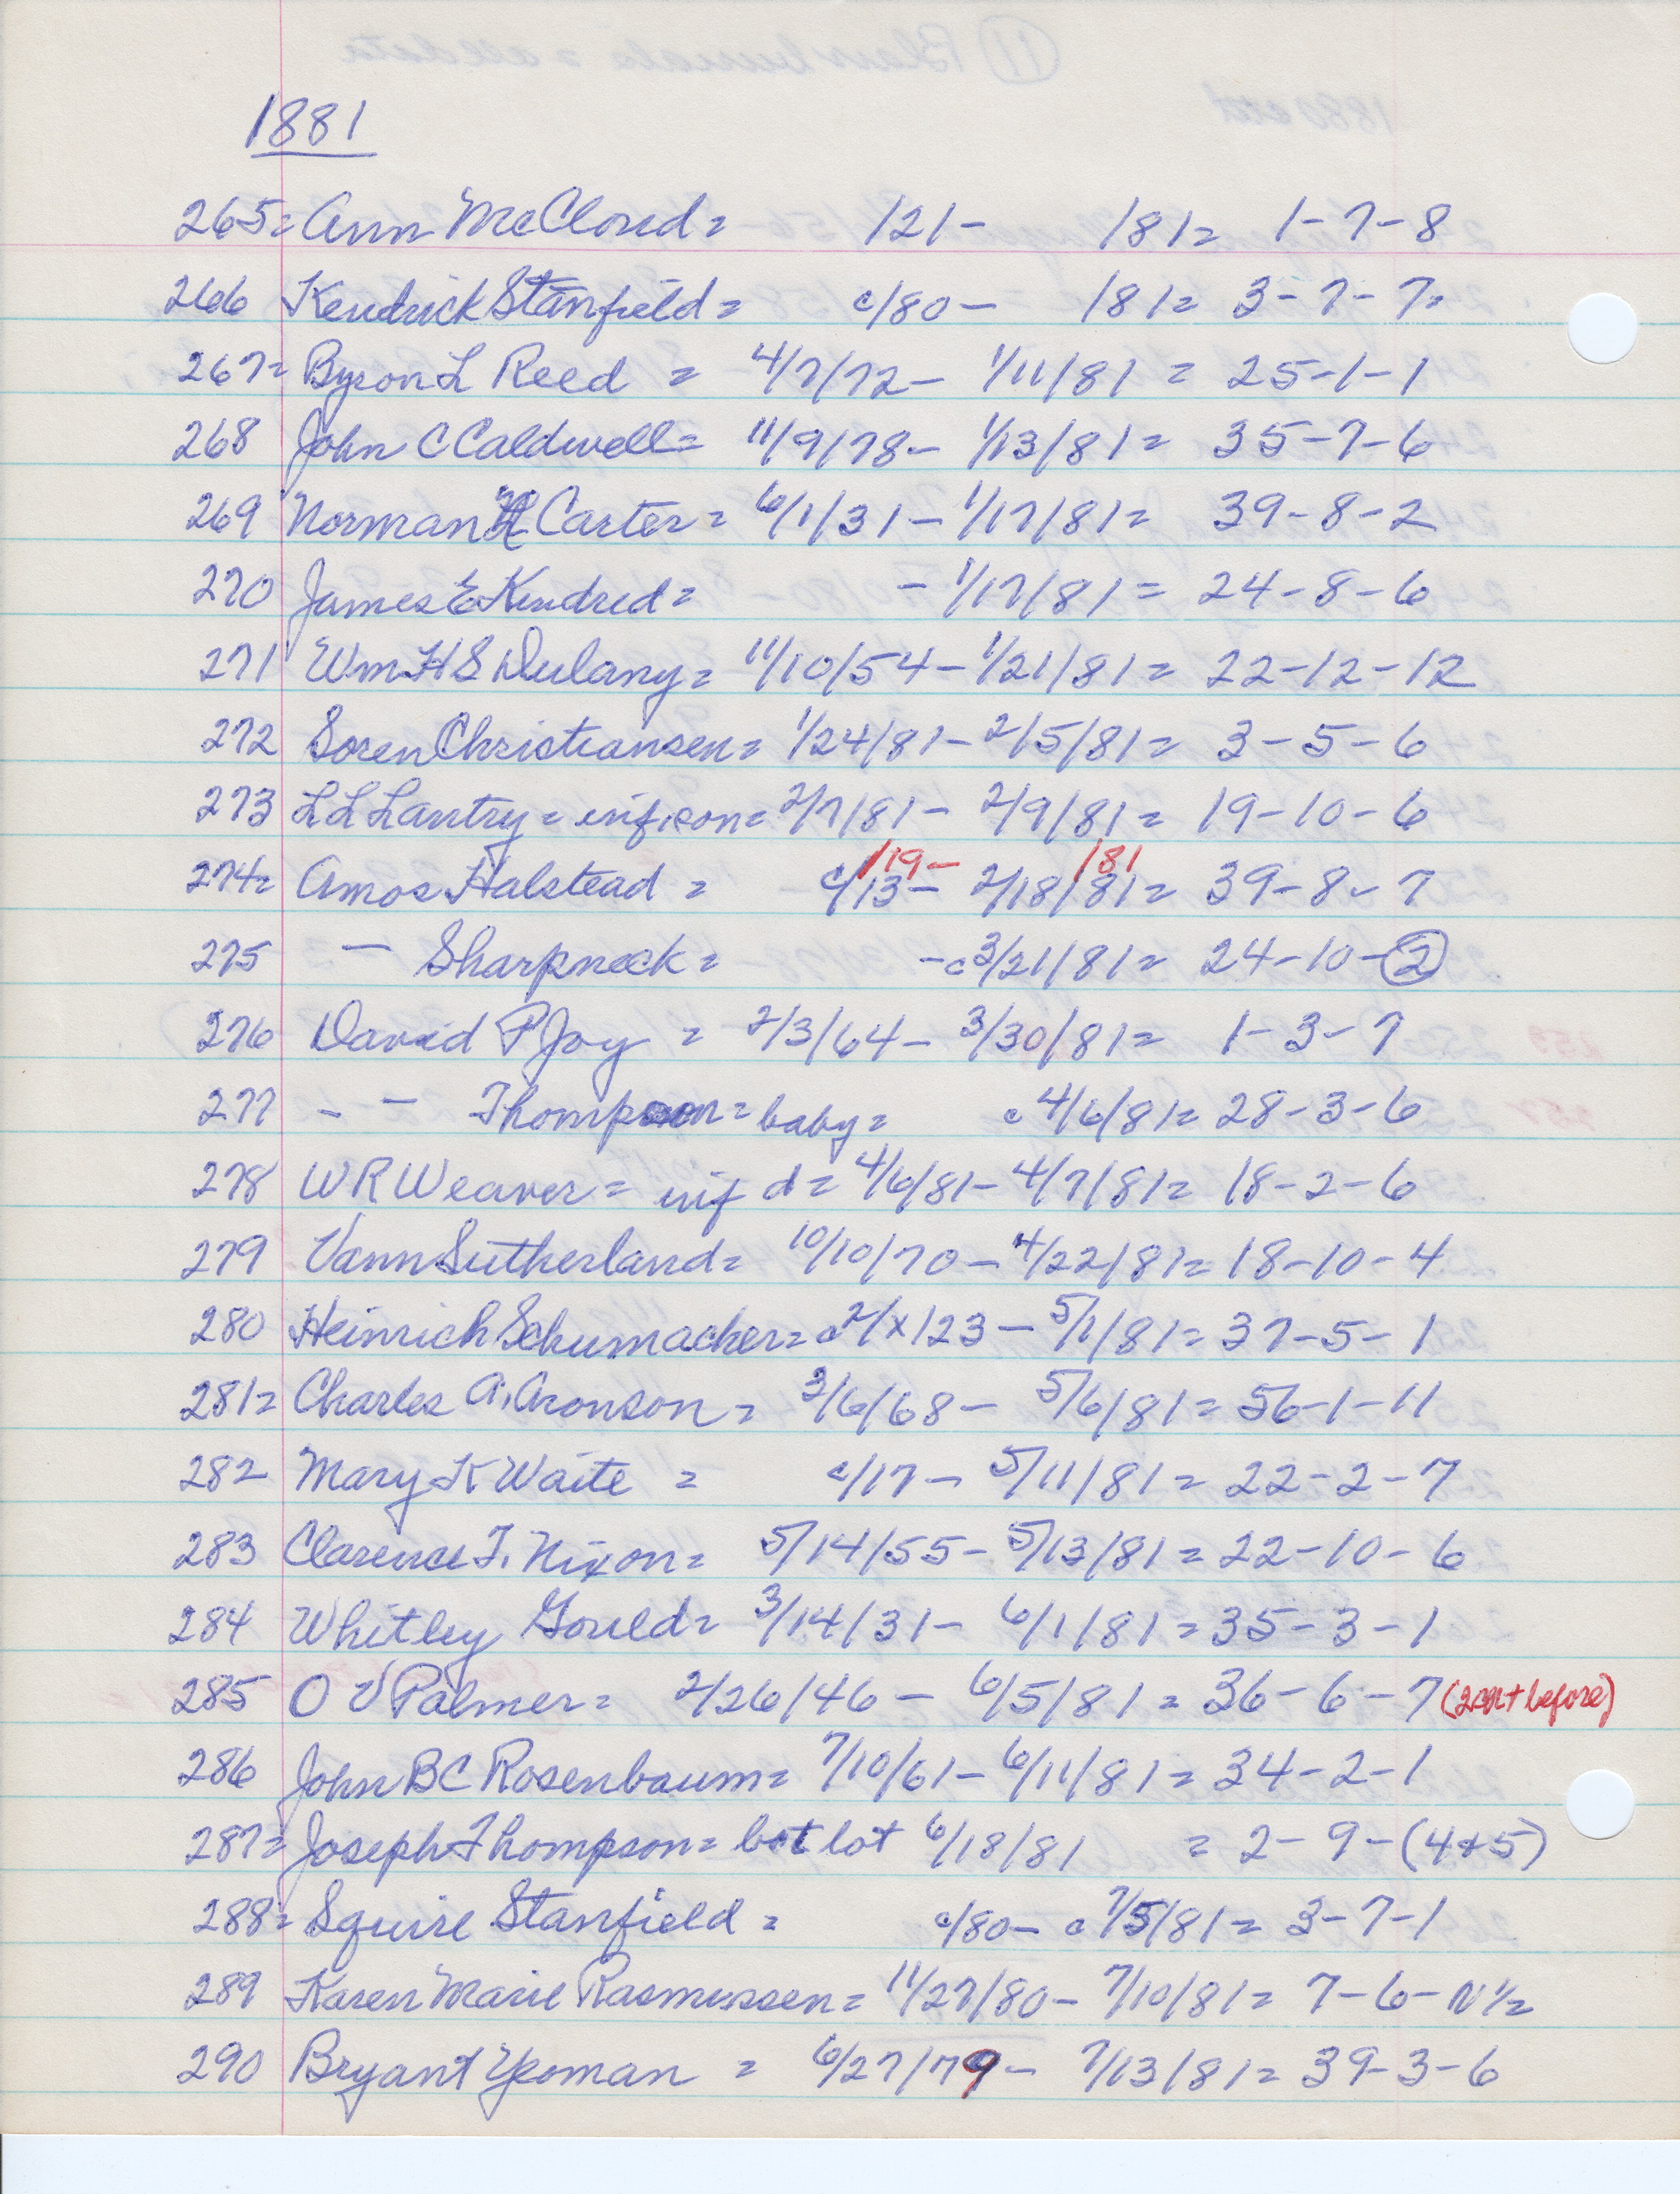 1881
265= Ann McCloud= /21- /81= 1-7-8
266 Kendrick Stanfield= c/80- /81= 3-7-7=
267= Byron L Reed = 4/7/72- 1/11/81= 25-1-1
268 John C Caldwell= 11/9/78- 1/13/81= 35-7-6
269 Norman H Carter= 6/1/31- 1/17/81= 39-8-2
270 James E Kendred= - 1/17/81= 24-8-6
271 Wm H S Dulany= 11/10/54- 1/21/81= 22-12-12
272 Soren Christiansen= 1/24/81- 2/5/81= 3-5-6
273 L L Lantry= inf, son= 2/7/81- 2/9/81= 19-10-6
/19- /81
274= Amos Halstead = c/13- 2/18/81= 39-8-7
275 - Sharpneck= -c3/21/81= 24-10-2
276 David P Joy = 2/3/64- 3/30/81= 1-3-7
277 - - Thompson= baby= c4/6/81= 28-3-6
278 W R Weaver= inf d= 4/6/81- 4/7/81= 18-2-6
279 Vann Sutherland= 10/10/70- 4/22/81= 18-10-4
280 Heinrich Schumacker= c2/x/23- 5/1/81= 37-5-1
281= Charles A. Aronson= 3/6/68- 5/6/81= 56-1-11
282 Mary K Waite = c/17- 5/11/81= 22-2-7
283 Clarence F. Nixon= 5/14/55- 5/13/81= 22-10-6
284 Whitley Gould= 3/14/31- 6/1/81= 35-3-1
285 O V Palmer= 2/26/46- 6/5/81= 36-6-7 before)
286 John B C Rosenbaum= 7/10/61- 6/11/81= 34-2-1
287= Joseph Thompson= bot lot 6/18/81 = 2-9-(4+5)
288= Squire Stanfield= c/80- c7/5/81= 3-7-1
289 Karen Marie Rasmussen= 11/27/80- 7/10/81= 7-6-N½
290 Bryant Yeoman = 6/27/79- 7/13/81= 39-3-6